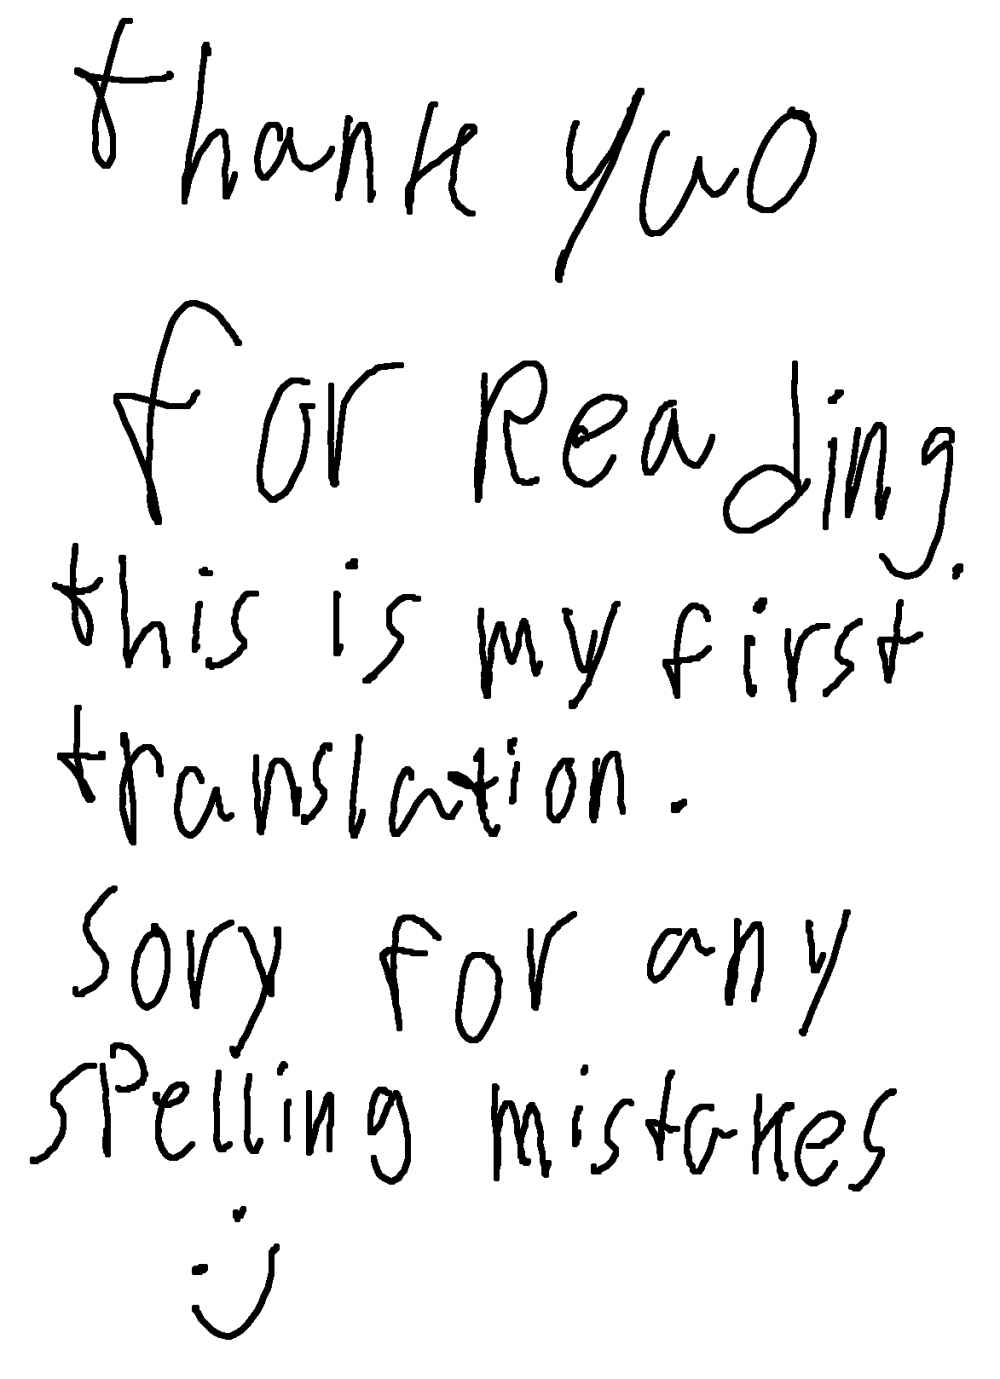 thank yuo
for Reading.
this is my first
translation.
sory for any
spelling mistakes
:)